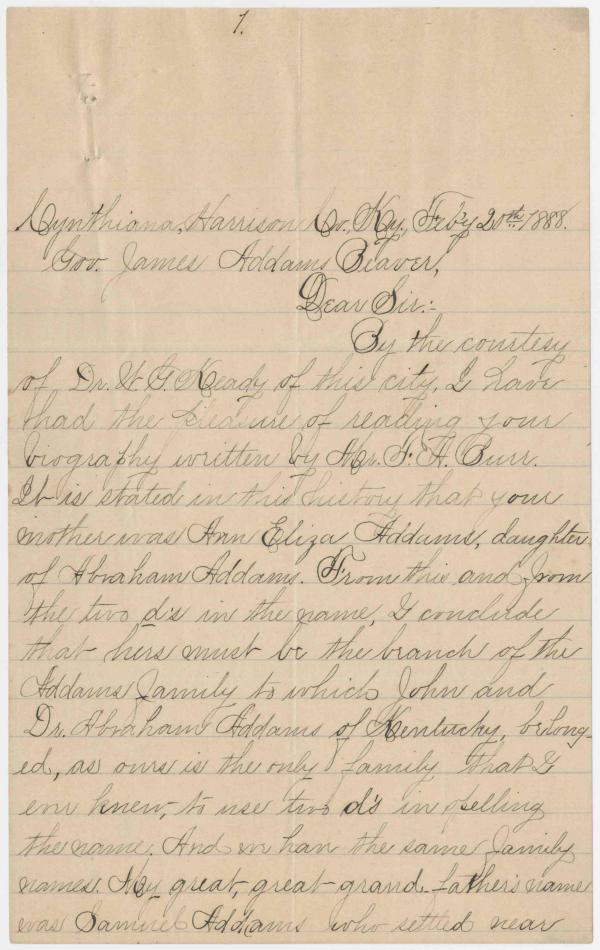 1.
Cynthiana, Harrison Co. Ky, Feb'y 20th 1888.
Gov. James Addams Beaver,
Dear Sir:-
By the courtesy
of Dr. W. G. Keady of this city, I have
had the pleasure of reading your
biography written by Mr. F. A. Burr.
It is stated in this history that your
mother was Ann Eliza Addams, daughter
of Abraham Addams. From this and from
the two d's in the name, I conclude
that hers must be the branch of the
Addams family to which John and
Dr. Abraham Addams of Kentucky, belong-
ed, as ours is the only family that I
ever knew, to use two d's in spelling
the name. And we have the same family
names. My great, great-grand-father's name
was Samuel Addams who settled near